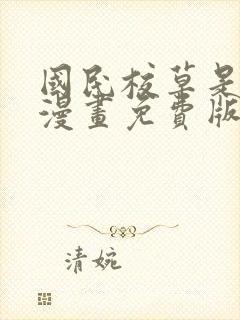 國民校草是
漫畫免費版
清婉